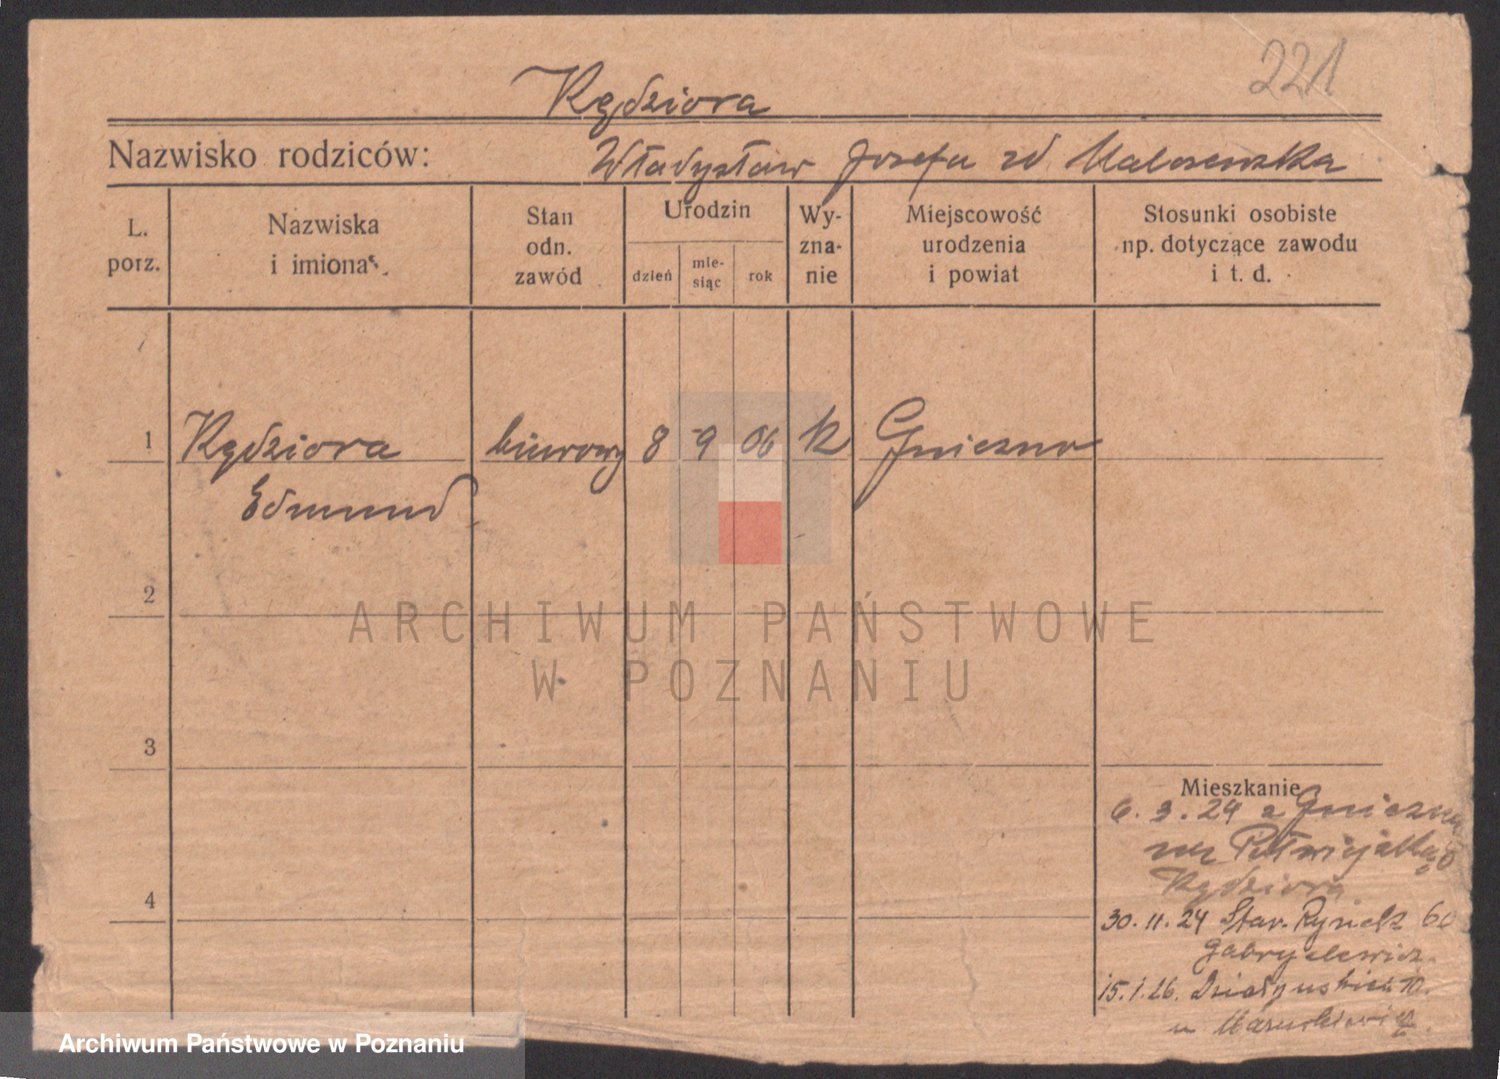 221
Kędziora
Nazwisko rodziców: Władysław Józefa zd
L. porz.
Nazwiska i imiona
Stan odn. zawód
Urodzin
dzień
mie-
siąc
rok
Wy-
zna-
nie
Miejscowość
urodzenia
i powiat
Stosunki osobiste
np. dotyczące zawodu
i t. d.
1 Kędziora biurowy 8 9 06 k Gniezno
Edmund
2
ARCHIWUM PAŃSTWOWE
W POZNANIU
3
Mieszkanie
6.3.24 z Gniezna
Półwiejska
Kędziora
4
30.11.24 Star. Rynek 60
Gabryelewicz
15.1.26. Działyńskich 10.
u
Archiwum Państwowe w Poznaniu